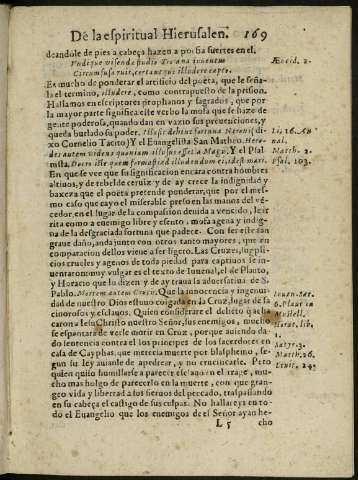 De la espiritual Hierusalen. 169
deandole de pies a cabeça hazen a porfia suertes en el.
Vndique visendi studio Troiana iuuentus
Circunfusa ruit, certantque illudere capto.
Æneid. 2.
Es mucho de ponderar el artificio del poeta, que le señala
el termino, illudere, como contrapuesto de la prision.
Hallamos en escriptores prophanos y sagrados, que por
la mayor parte significa este verbo la mofa que se haze de
gente poderosa, quando dan en vazio sus pretensiones, y
queda burlado su poder. Illusit dehinc fortuna Neronis (dixo
Cornelio Tacito) Y el Euangelista San Matheo. Herodes
autem videns quoniam illusus esset a Magis. Y el Psalmista.
Draco iste quem formasti ad illudendum ei: del mar.
Li. 16. Annal.
Matth. 2.
Psal. 103.
En que se vee que su significacion encara contra hombres
altiuos, y de rebelde ceruiz y de ay crece la indignidad y
baxeza que el poeta pretende ponderar, que por el mesmo
caso que cayo el miserable preso en las manos del vẽcedor,
en el lugar de la compassion deuida a vencido, le irrita
como a enemigo libre y esento, mofa agena y indigna
de la desgraciada fortuna que padece. Con ser este tan
graue daño, anda junto con otros tanto mayores, que en
comparacion dellos viene a ser ligero. Las Cruzes, suplicios
crueles y agenos de toda piedad para captiuos se inuentaron:
muy vulgar es el texto de Iuuenal, el de Plauto,
y Horacio que lo dizen y de ay traua la aduersatiua de S.
Pablo. Mortem autem Crucis. Que la innocencia y ingenuidad
de nuestro Dios estuuo colgada en la Cruz, lugar de facinorosos
y esclauos. Quien considerare el delicto que achacaron
a Iesu Christo nuestro Señor, sus enemigos, mucho
se espantara de verle morir en Cruz, porque auiendo dado
sentencia contra el los principes de los sacerdotes en
casa de Cayphas, que merecia muerte por blasphemo, segun
su ley auianle de apedrear, y no crucificarle. Pero
quien quiso humillarse a parecer esclauo en el traje, mucho
mas holgo de parecerlo en la muerte, con que grangeo
vida y libertad a los sieruos del pecado, traspassando
en su cabeça el castigo de sus culpas. No hallareys en todo
el Euangelio que los enemigos de el Señor ayan he-
Iuuen. Sat. 6.
Plaut. in Mustell.
Horat. lib. Satyr. 3.
Matth. 26.
Leuit. 24.
L 5 cho